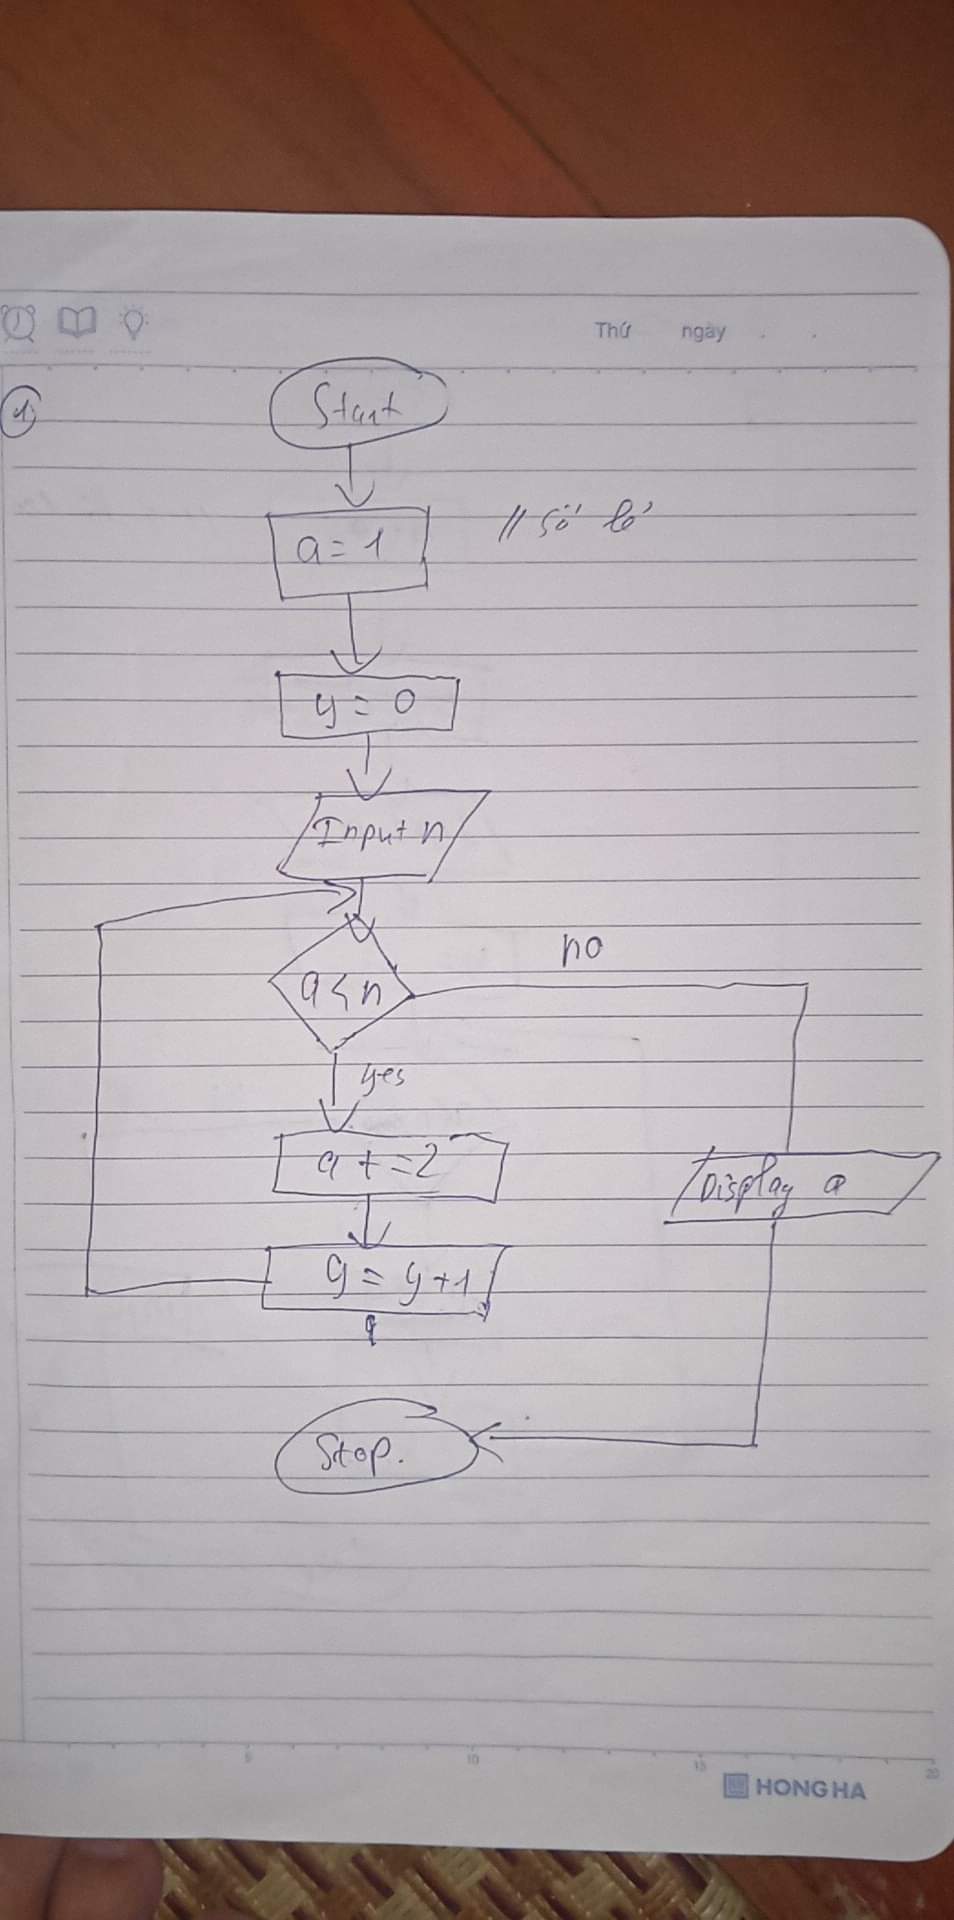 Thứ ngày . .
1
Start
a = 1 // số lẻ
y = 0
Input n
a < n
no
yes
a + = 2
Display a
y = y + 1
Stop.
5 10 15 20
HONG HA